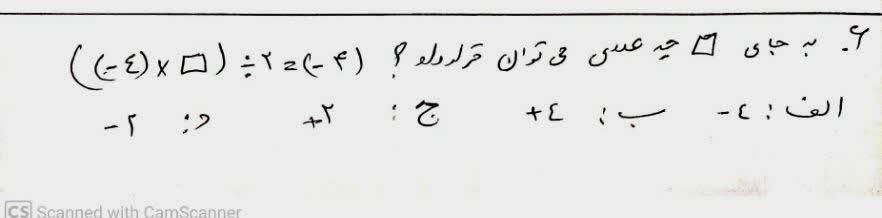 ۶. به جای □ چه عددی می توان قرار داد؟ ((-٤) × □) ÷ ۲ = (-۴)
الف: ٤- ب: ٤+ ج: ۲+ د: ۲-
CS Scanned with CamScanner